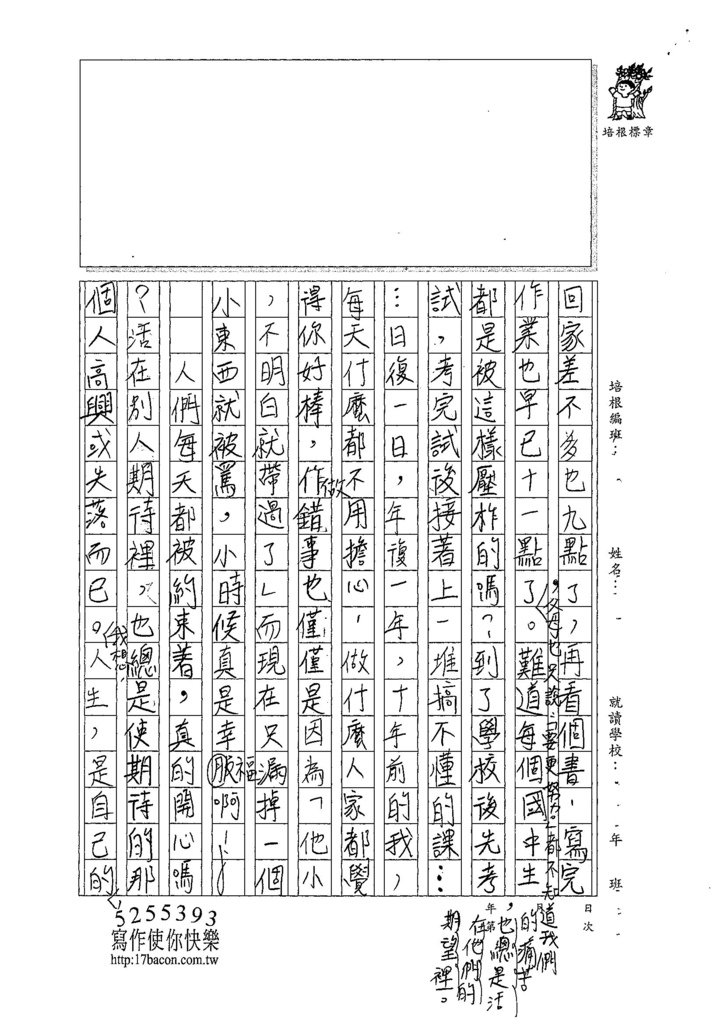 培根標章
培根編班：
姓名：
就讀學校：
年 班
日 次
回家差不多也九點了，再看個書、寫完
作業也早已十一點了。難道每個國中生
，父母也只說：「要更努力。」都不知道我們的痛苦，也總是活在他們的期望裡。
都是被這樣壓柞的嗎？到了學校後先考
試，考完試後接著上一堆搞不懂的課…
…日復一日，年復一年，十年前的我，
每天付麼都不用擔心、做付麼人家都覺
得你好棒，作錯事也僅僅是因為「他小
做
，不明白就帶過了」而現在只漏掉一個
小東西就被罵，小時候真是幸服啊！
福
人們每天都被約束著，真的開心嗎
？活在別人期待裡。也總是使期待的那
個人高興或失落而已。人生，是自己的
我想，
年 第
5255393
寫作使你快樂
http:17bacon.com.tw